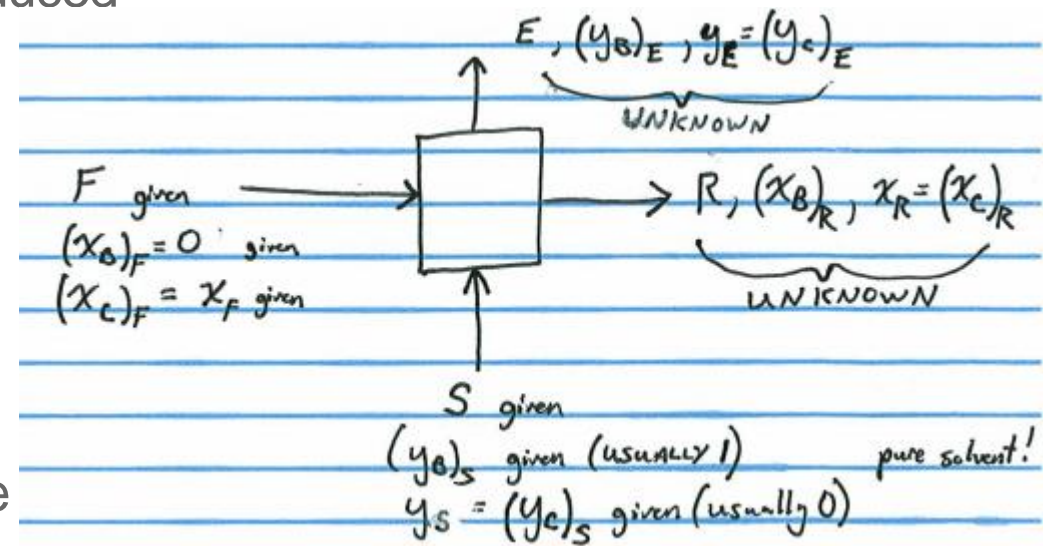 E, (y_B)_E, y_E = (y_C)_E
UNKNOWN
F given
(x_B)_F = 0 given
(x_C)_F = x_F given
R, (x_B)_R, x_R = (x_C)_R
UNKNOWN
S given
(y_B)_S given (USUALLY 1) pure solvent!
y_S = (y_C)_S given (usually 0)